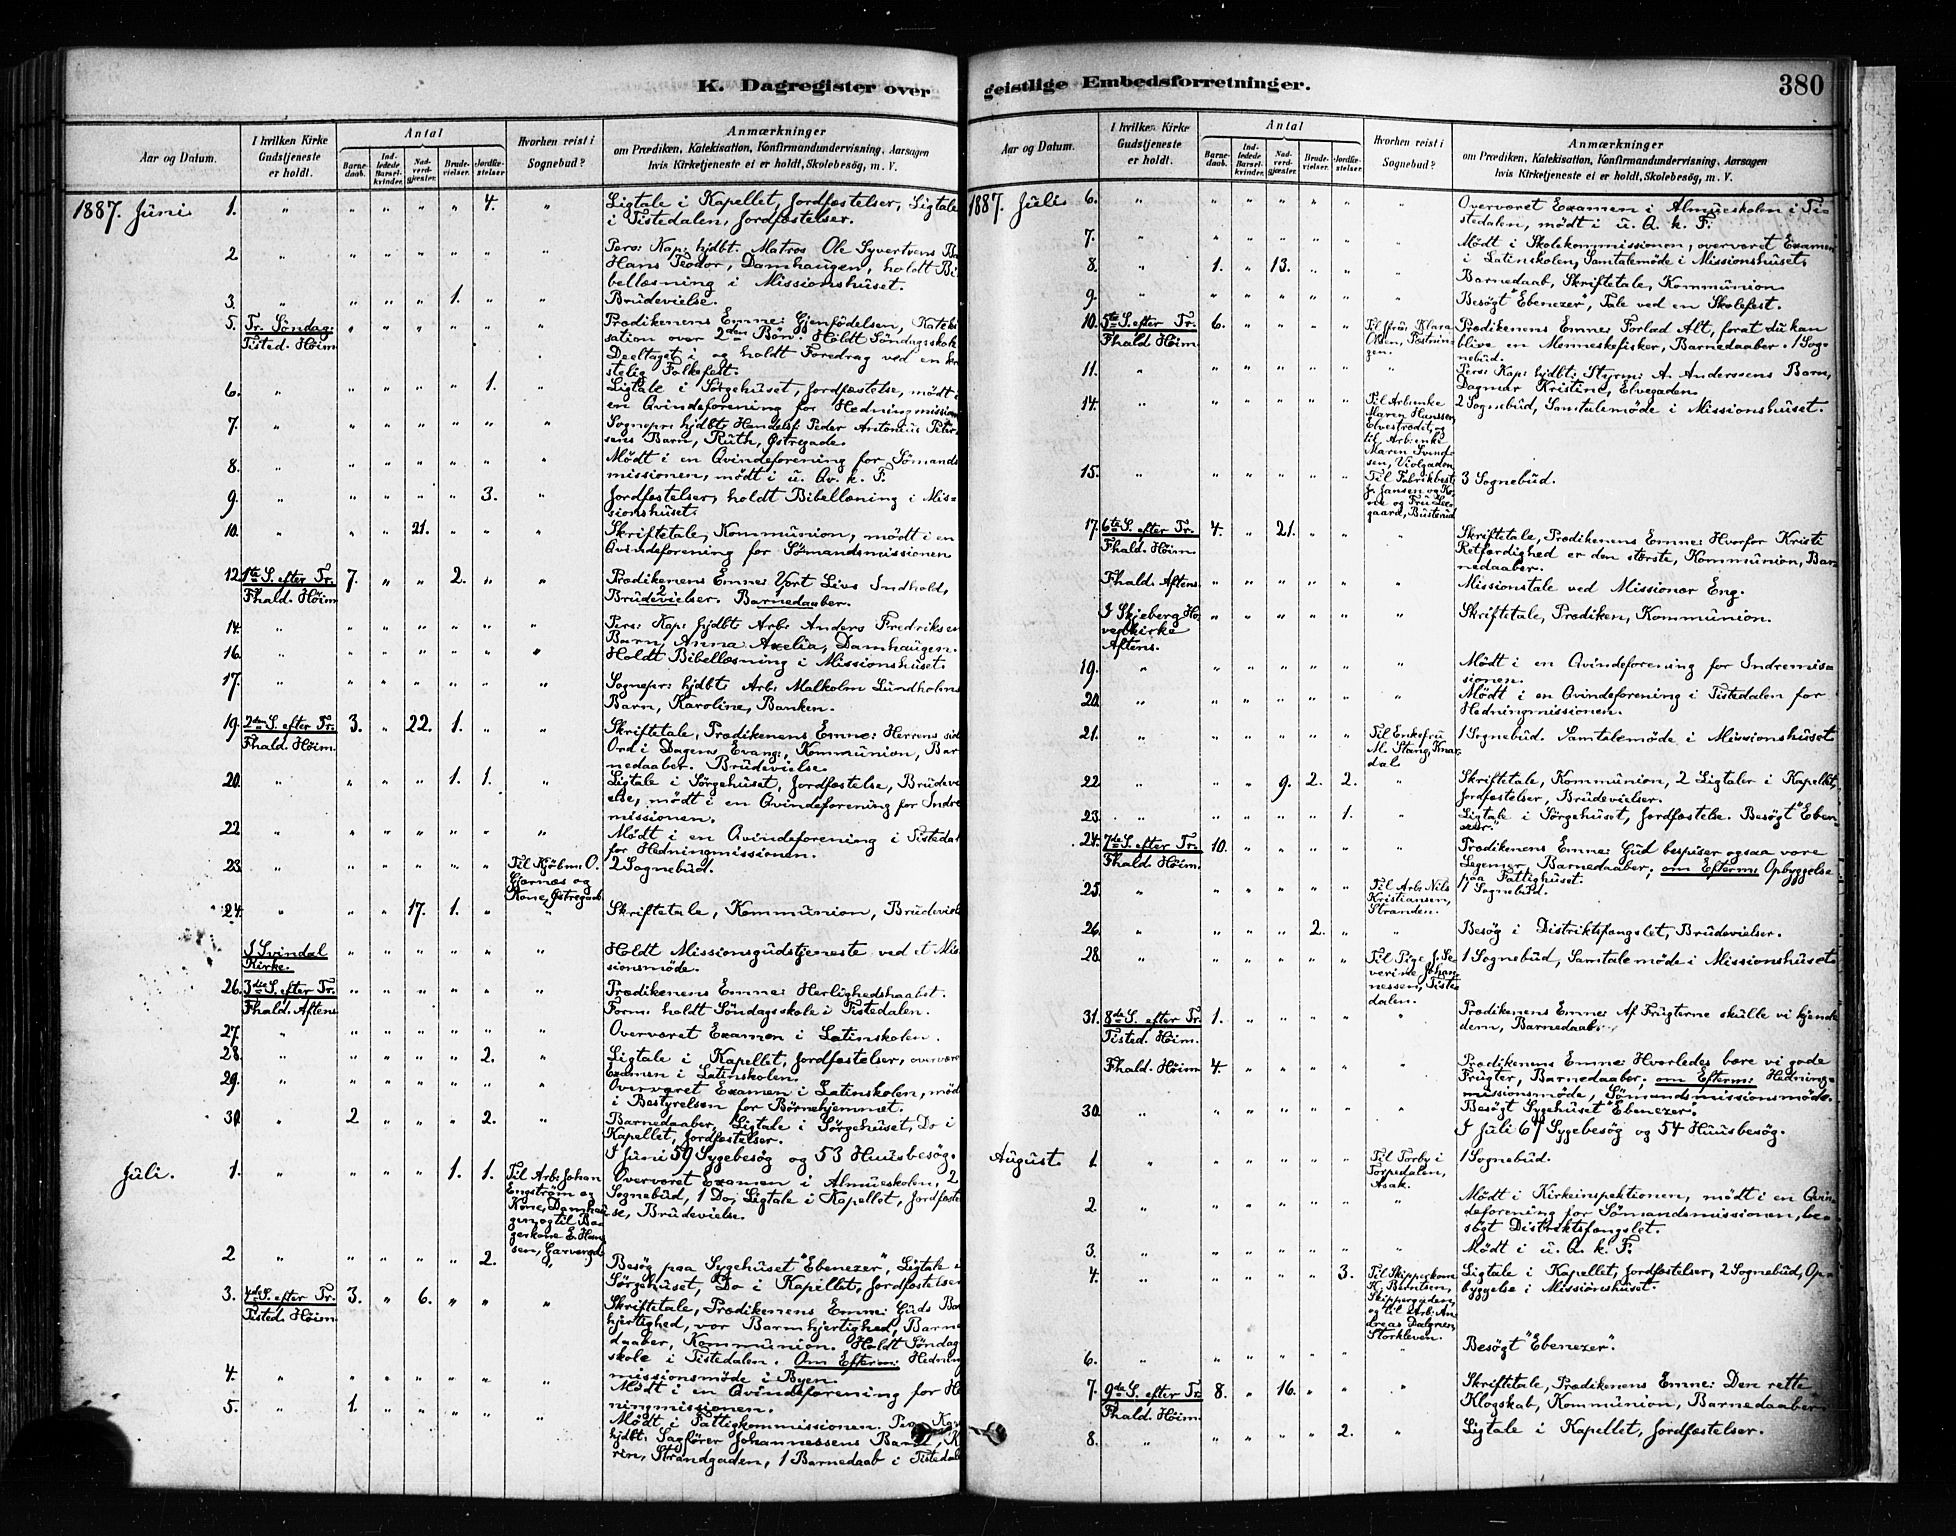 K. Dagregister over
Aar og Datum.
I hvilken Kirke
Gudstjeneste
er holdt.
Antal
Barne-
daab.
Ind-
ledede
Barsel-
kvinder.
Nad-
verd-
gjæster.
Brude-
vielser.
Jordfæ-
stelser.
Hvorhen reist i
Sognebud?
Anmærkninger
om Prædiken, Katekisation, Konfirmandundervisning, Aarsagen
hvis Kirketjeneste ei er holdt, Skolebesøg, m. V.
1887. Juni 1. " " " " " 4. " Ligtale i Kapellet, Jordfæstelser, Ligtale
i Tistedalen, Jordfæstelser.
2. " " " " " " " Pers: Kap: hjdbt. Matros Ole Syvertsens
Hans Teodor, Damhaugen, holdt Bi
bellæsning i Missionshuset.
3. " " " " 1. " " Brudevielse.
5. Tr. Søndag. " " " " " " Prædikenens Emne: Gjenfødelsen, Kateki
Tisted. Høim. sation over 2den Bøn. Holdt Søndagsskole
Deeltaget i og holdt Foredrag ved en
stelig Folkefest.
6. " " " " " 1. " Ligtale i Sørgehuset, Jordfæstelse, mødt i
en Qvindeforening for Hedningmission
7. " " " " " " " Sognepr: hjdbt. Handelsf: Peder Antonius Peter
sens Barn, Ruth, Østregade.
8. " " " " " " " Mødt i en Qvindeforening for Sømands
missionen, mødt i u. Qv. k. F.
9. " " " " " 3. " Jordfæstelser, holdt Bibellæsning i Mis-
sionshuset.
10. " " " 21. " " " Skriftetale, Kommunion, mødt i en
Qvindeforening for Sømandsmissionen
12. 1ste S. efter Tr. 7. " " 2. " " Prædikenens Emne: Vort Livs Indhold,
Fhald. Høim. 2 Brudevielser. Barnedaaber.
14. " " " " " " " Pers: Kap: hjdbt. Arb: Anders Fredriksen
Barn, Anna Axelia, Damhaugen.
16. " " " " " " " Holdt Bibellæsning i Missionshuset.
17. " " " " " " " Sognepr: hjdbt. Arb: Malkolm Lundholms
Barn, Karoline, Banken.
19. 2den S. efter Tr. 3. " 22. 1. " " Skriftetale, Prædikenens Emne: Herrens
Fhald. Høim. Ord i Dagens Evang:, Kommunion, Bar
nedaaber. Brudevielse.
20. " " " " 1. 1. " Ligtale i Sørgehuset, Jordfæstelse, Brudevi
else, mødt i en Qvindeforening for Indre
missionen.
22. " " " " " " " Mødt i en Qvindeforening i Tistedal
for Hedningmissionen.
23. " " " " " " Til Kjøbm: O. 2 Sognebud.
Gjærnæs og
Kone, Østregade
24. " " " 17. 1. " " Skriftetale, Kommunion, Brudeviels
I Svindal " " " " " " Holdt Missionsgudstjeneste ved et Mis
Kirke. sionsmøde.
26. 3die S. efter Tr. " " " " " " Prædikenens Emne: Herlighedshaabet.
Fhald. Aftens. Form: holdt Søndagsskole i Tistedalen.
27. " " " " " " " Overværet Examen i Latinskolen.
28. " " " " " 2. " Ligtale i Kapellet, Jordfæstelser, overvære
Examen i Latinskolen.
29. " " " " " " " Overværet Examen i Latinskolen, mød
i Bestyrelsen for Børnehjemmet.
30. " 2 " " " 2. " Barnedaaber, Ligtale i Sørgehuset, Do i
Kapellet, Jordfæstelser.
I Juni 59 Sygebesøg og 53 Huusbesøg.
Juli. 1. " " " " 1. 1. Til Arb: Johan Overværet Examen i Almueskolen, 2
Engstrøm og Sognebud, 1 Do, Ligtale i Kapellet, Jordfæste
Kone, Damhau se, Brudevielse.
gen og til Ba
gerkone E. Han
sen, Garvergd.
2. " " " " " 2. " Besøg paa Sygehuset "Ebenezer", Ligtale i
Sørgehuset, Do i Kapellet, Jordfæstelser
3. 4de S. efter Tr. 3. " 6. " " " Skriftetale, Prædikenens Emne: Guds Bar
Tisted. Høim. hjertighed, vor Barmhjertighed, Barne
daaber, Kommunion. Holdt Søndag
skole i Tistedalen. Om Efterm: Hedning
missionsmøde i Byen.
4. " " " " " " " Mødt i en Qvindeforening for He
ningmissionen.
5. " 1. " " " " " Mødt i Fattigkommissionen. Pers: Kap:
hjdbt: Sagfører Johannessens Barn, K
rin, Strandgaden, 1 Barnedaab i Tistedal
geistlige Embedsforretninger.
380
Aar og Datum.
I hvilken Kirke
Gudstjeneste
er holdt.
Antal
Barne-
daab.
Ind-
ledede
Barsel-
kvinder.
Nad-
verd-
gjæster.
Brude-
vielser.
Jordfæ-
stelser.
Hvorhen reist i
Sognebud?
Anmærkninger
om Prædiken, Katekisation, Konfirmandundervisning, Aarsagen
hvis Kirketjeneste ei er holdt, Skolebesøg, m. V.
1887. Juli 6. " " " " " " " Overværet Examen i Almueskolen i Ti-
stedalen, mødt i u. Q. k. F.
7. " " " " " " " Mødt i Skolekommissionen, overværet Examen
i Latinskolen, Samtalemøde i Missionshuset.
8. " 1. " 13. " " " Barnedaab, Skriftetale, Kommunion
9. " " " " " " " Besøgt "Ebenezer", Tale ved en Skolefest.
10. 5te S. efter Tr. 6. " " " " Til Frue Klara Prædikenens Emne: Forlad Alt, forat du kan
Fhald Høim Olsen, Fæstnin- blive en Menneskefisker, Barnedaaber. 1 Sog-
gen. nebud.
11. " " " " " " " Pers: Kap: hjdbt: Styrm: A. Anderssens Barn,
Dagmar Kristine, Elvegaden.
14. " " " " " " Til Arb:enke 2 Sognebud, Samtalemøde i Missionshuset.
Maren Hanssen,
Elvestrædet, og
til Arb:enke
Maren Svend-
sen, Violgaden
15. " " " " " " Til Fabrikbest. 3 Sognebud.
J. Jansen og Ko-
ne og Fru
gaard, Busterud
17. 6te S. efter Tr. 4. " 21. " " " Skriftetale, Prædikenens Emne: Hvorfor Kristi
Fhald. Høim. Retfærdighed er den største, Kommunion, Bar
nedaaber.
Fhald. Aftens. " " " " " " Missionstale ved Missionær Eng.
I Skjeberg Ho- " " " " " " Skriftetale, Prædiken, Kommunion.
vedkirke
Aftens.
19. " " " " " " " Mødt i en Qvindeforening for Indremis-
sionen.
20. " " " " " " " Mødt i en Qvindeforening i Tistedalen for
Hedningmissionen.
21. " " " " " " Til Enkefru 1 Sognebud. Samtalemøde i Missionshuset
M. Stang, Knar-
dal.
22. " " " 9. 2. 2. " Skriftetale, Kommunion, 2 Ligtaler i Kapellet,
Jordfæstelser, Brudevielser.
23. " " " " " 1. " Ligtale i Sørgehuset, Jordfæstelse. Besøgt "Eben-
ezer."
24. 7de S. efter Tr. 10. " " " " " Prædikenens Emne: Gud bespiser ogsaa vore
Fhald. Høim. Legemer, Barnedaaber, om Efterm: Opbyggelse
paa Fattighuset.
25. " " " " " " Til Arb: Nils 1 Sognebud.
Kristiansen,
Stranden.
26. " " " " 2. " " Besøg i Distriktsfængslet, Brudevielser.
28. " " " " " " Til Pige J. Se- 1 Sognebud, Samtalemøde i Missionshuset
verine Johan-
nessen, Tiste
dalen.
31. 8de S. efter Tr. 1. " " " " " Prædikenens Emne: Af Frugterne skulle vi kjende
Tisted. Høim. dem, Barnedaab.
Fhald. Høim. 4. " " " " " Prædikenens Emne: Hvorledes bære vi gode
Frugter, Barnedaaber, om Efterm: Hedning-
missionsmøde, Sømandsmissionsmøde.
30. " " " " " " " Besøgt Sygehuset "Ebenezer".
I Juli 67 Sygebesøg og 54 Huusbesøg.
August. 1. " " " " " " Til Torby i 1 Sognebud.
Torpedalen,
Asak.
2. " " " " " " " Mødt i Kirkeinspektionen, mødt i en Qvin-
deforening for Sømandsmissionen, be-
søgt Distriktsfængslet.
3. " " " " " " " Mødt i u. Q. k. F.
4. " " " " " 3. Til Skipperkone Ligtale i Kapellet, Jordfæstelser, 2 Sognebud, Op-
K. Berntsen, byggelse i Missionshuset.
Skippergaden,
og til Arb: An-
dreas Dalgren,
Storkleven.
6. " " " " " " " Besøgt "Ebenezer".
7. 9de S. efter Tr. 8. " 16. " " " Skriftetale, Prædikenens Emne: Den rette
Fhald. Høim. Klogskab, Kommunion, Barnedaaber.
8. " " " " " 2. " Ligtale i Kapellet, Jordfæstelser.